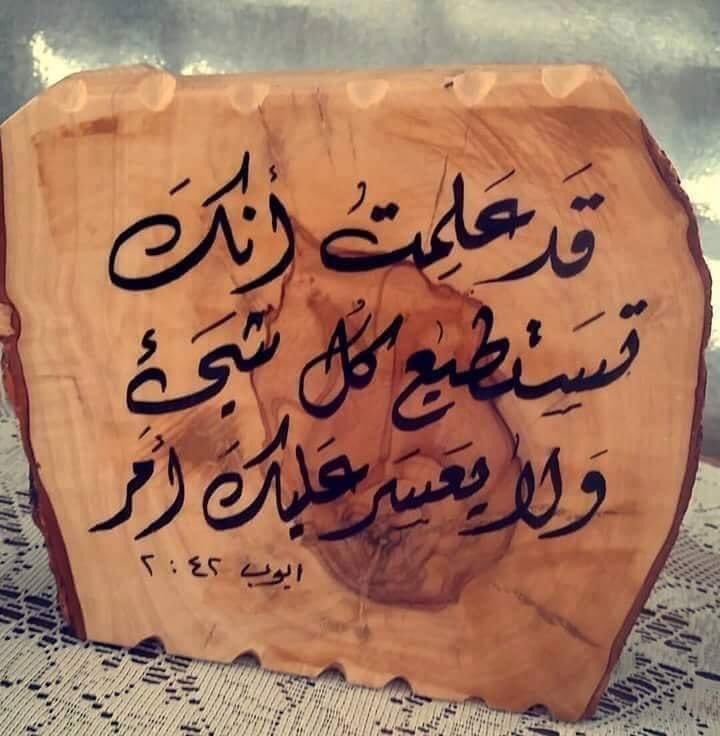 قَد عَلِمتُ أنكَ
تَسَتطيع كلُ شَيءٍ
وَلا يَعسَر عَليكَ أمَر
ايوب ٤٢ : ٢